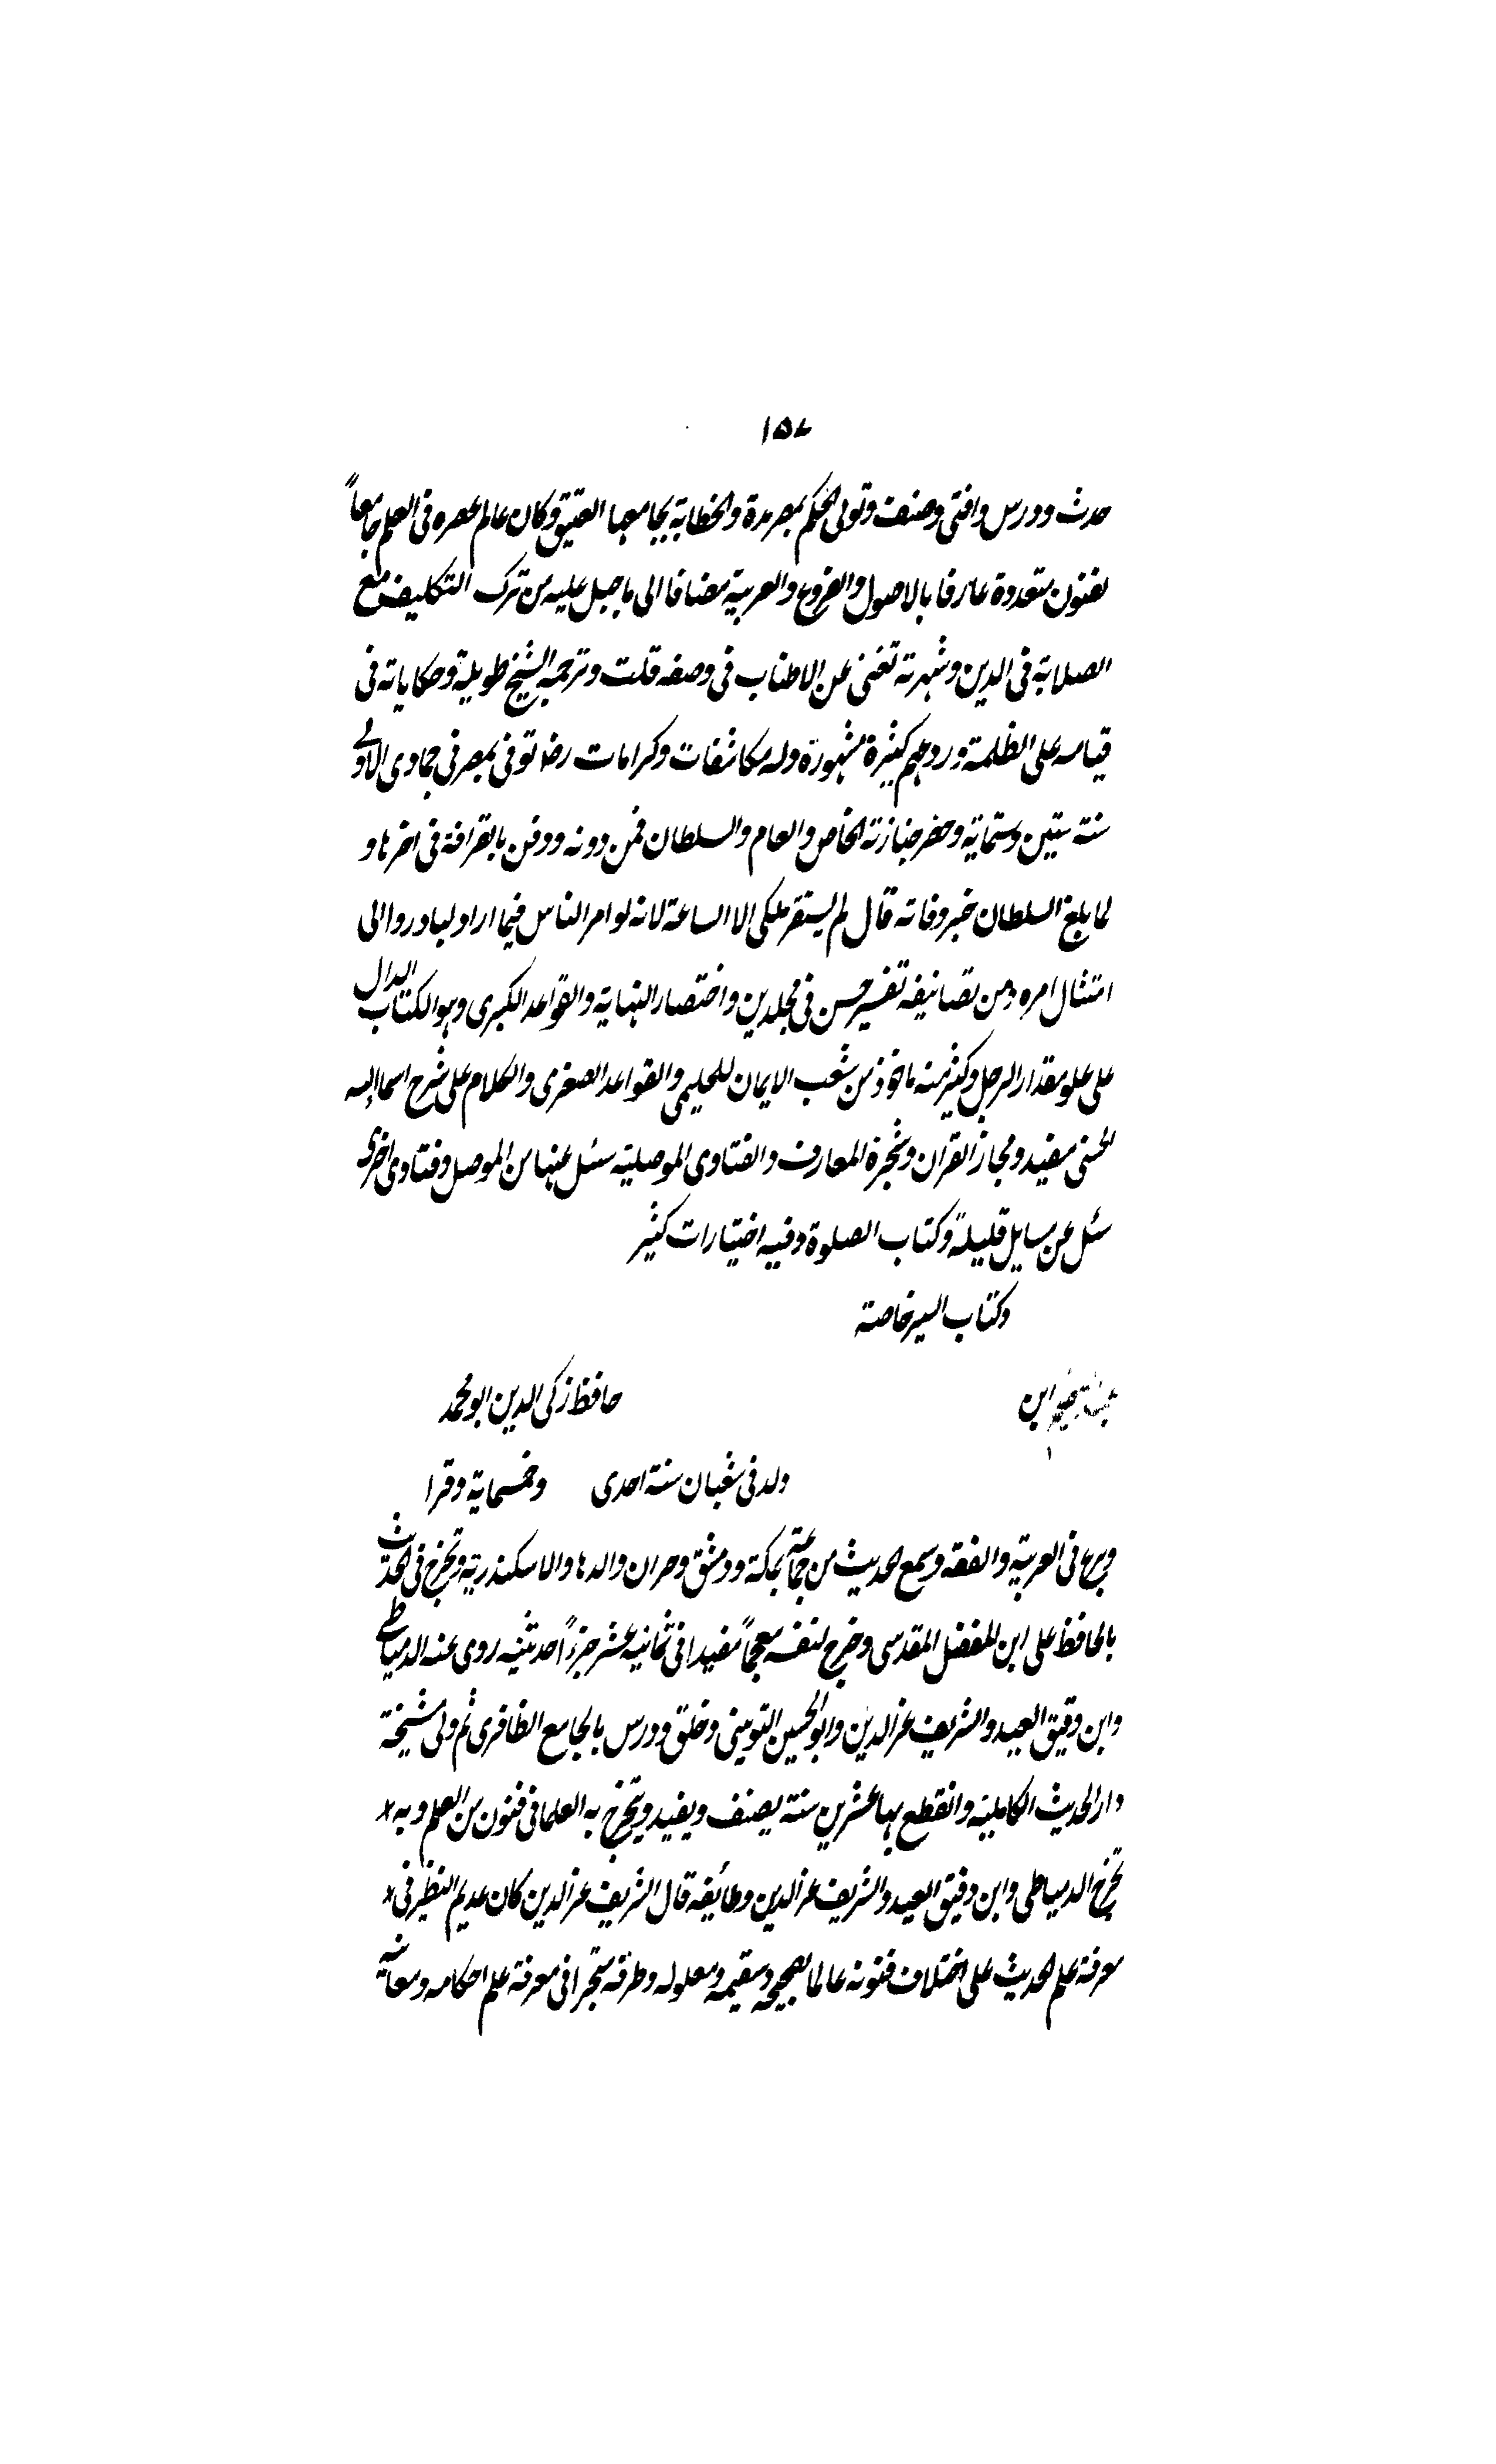 ١٥٨
حدث ودرس وافتى وصنف وتولى الحكم بمصر مدة والخطابة بجامعها العتيق وكان عالم عصره فى العلم جامعاً
لفنون متعددة عارفا بالاصول والفروع والعربية مضافا الى ما جبل عليه من ترك التكليف مع
الصلابة فى الدين وشهرته تغنى عن الاطناب فى وصفه قلت وترجمة الشيخ طويلة وحكاياته فى
قيامه على الظلمة وردعهم كثيرة مشهورة وله مكاشفات وكرامات رضـ توفى بمصر فى جمادى الاولى
سنة ستين وستماية وحضر جنازته الخاص والعام والسلطان فمن دونه ودفن بالقرافة فى اخرها و
لما بلغ السلطان خبر وفاته قال لم يستقر ملكى الا الساعة لانه لو امر الناس فيما اراد لبادروا الى
امتثال امره ومن تصانيفه تفسير حسن فى مجلدين واختصار النهاية والقواعد الكبرى وهو الكتاب الدال
على علو مقدار الرجل وكثير منه ماخوذ من شعب الايمان للحليمى والقواعد الصغرى والكلام على شرح اسما الله
الحسنى مفيد ومجاز القران وشجرة المعارف والفتاوى الموصلية سئل عنها من الموصل وفتاوى اخرى
سئل عن مسايل قليلة وكتاب الصلوة وفيه اختيارات كثير
وكتاب السير خاصة
ابن حافظ زكى الدين ابو محمد
ولد فى شعبان سنة احدى وخمسماية وقرا
وبرع فى العربية والفقه وسمع الحديث من جماعة بمكة ودمشق وحران والدها والاسكندرية وتخرج فى الحديث
بالحافظ على ابن المفضل المقدسى وخرج لنفسه معجماً مفيدا فى ثمانيه عشر جزءاً حديثيه روى عنه الدمياطى
وابن دقيق العيد والشريف عز الدين وابو الحسين التونينى وخلق ودرس بالجامع الظافرى ثم ولى مشيخة
دار الحديث الكاملية وانقطع بها عشرين سنة يصنف ويفيد ويتخرج به العلما فى فنون من العلم وبه *
تخرج الدمياطى وابن دقيق العيد والشريف عز الدين وطائفه قال الشريف عز الدين كان عديم النظير فى *
معرفة علم الحديث على اختلاف فنونه عالما بصحيحه وسقيمه ومعلوله وطرقه متبحرا فى معرفة علم احكامه ومعانيه